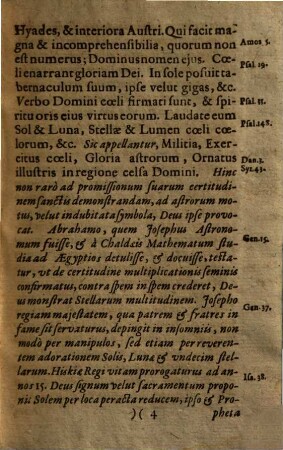 Hyades, & interiora Austri. Qui facit ma-
gna & incomprehensibilia, quorum non
est numerus; Dominus nomen ejus. Cœ-
li enarrant gloriam Dei. In sole posuit ta-
bernaculum suum, ipse velut gigas, &c.
Verbo Domini cœli firmati sunt, & spi-
ritu oris ejus virtus eorum. Laudate eum
Sol & Luna, Stellæ & Lumen cœli cœ-
lorum, &c. Sic appellantur, Militia, Exer-
citus cœli, Gloria astrorum, Ornatus
illustris in regione celsa Domini. Hinc
non rarò ad promissionum suarum certitudi-
nem sanctiùs demonstrandam, ad astrorum mo-
tus, velut indubitata symbola, Deus ipse provo-
cat. Abrahamo, quem Josephus Astrono-
mum fuisse, & à Chaldæis Mathematum stu-
dia ad Ægyptios detulisse, & docuisse, testa-
tur, vt de certitudine multiplicationis seminis
confirmatus, contra spem in spem crederet, De-
us monstrat Stellarum multitudinem. Josepho
regiam majestatem, qua patrem & fratres in
fame sit servaturus, depingit in insomniis, non
modò per manipulos, sed etiam per reveren-
tem adorationem Solis, Lunæ & vndecim stel-
larum. Hiskiæ Regi vitam prorogaturus ad an-
nos 15. Deus signum velut sacramentum propo-
nit Solem per loca peracta reducem, ipso & Pro-
)( 4 pheta
Amos 5.
Psal. 19.
Psal. 33.
Psal. 148.
Dan. 3.
Syr. 43.
Gen. 15.
Gen. 37.
Isa. 38.